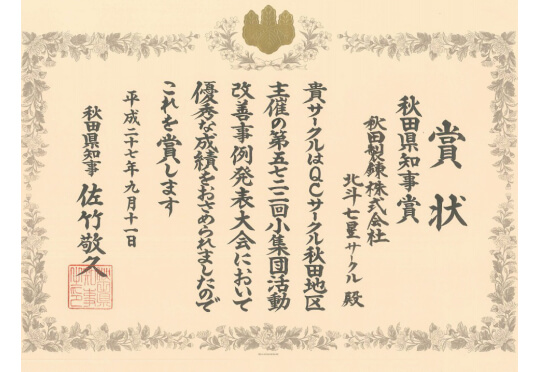 賞状
秋田県知事賞
秋田製錬株式会社
北斗七星サークル 殿
貴サークルはQCサークル秋田地区
主催の第五七二二回小集団活動
改善事例発表大会において
優秀な成績をおさめられましたので
これを賞します
平成二十七年九月十一日
秋田県知事 佐竹敬久